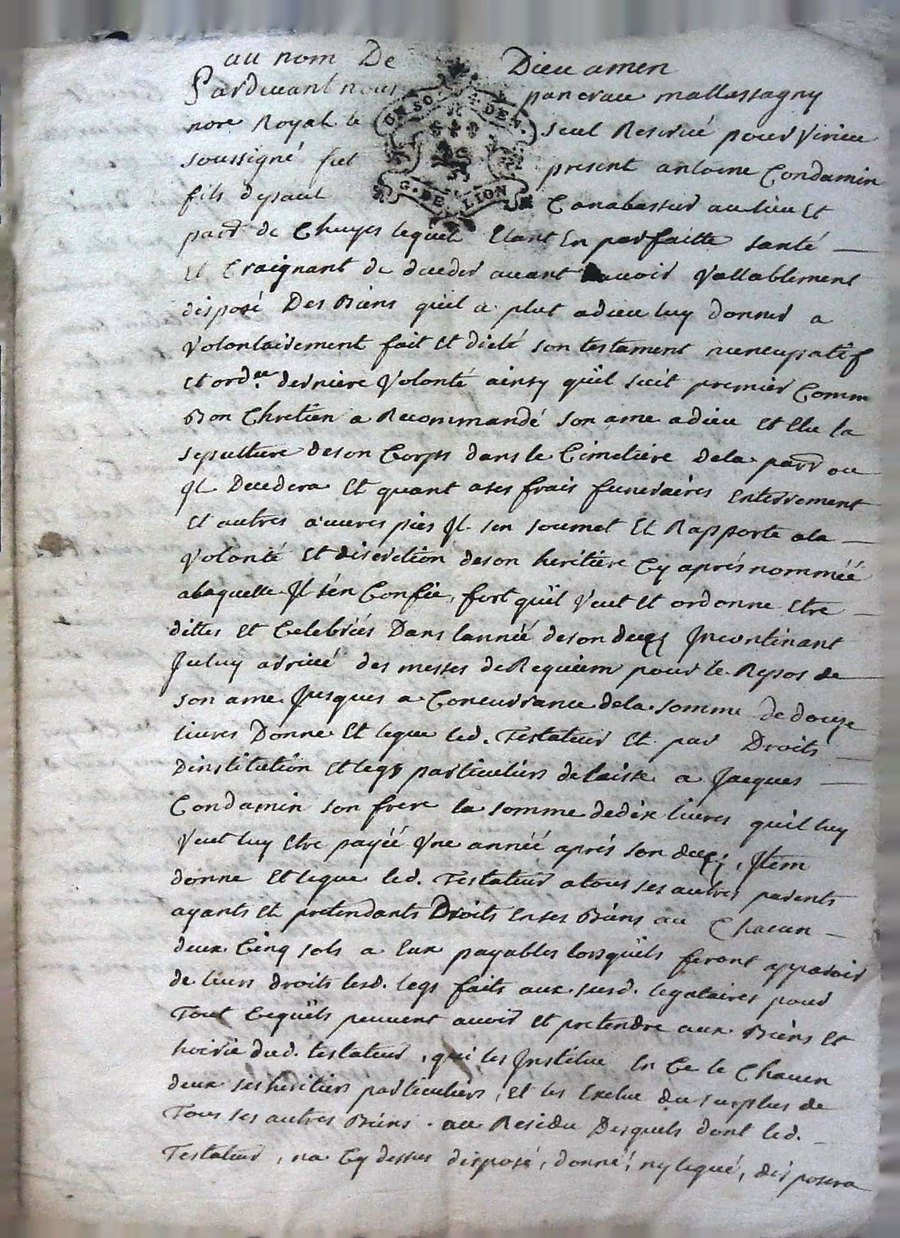 au nom De Dieu amen
Pardevant nous pancrace mallassagny
nore Royal le seul Reservé pour Virieu
soussigné fut present antoine Condamin
fils depaul Canabassier au lieu Et
parr de Chuyer lequel Etant En parfaitte santé
Et Craignant de deceder avant d'avoir Vallablement
disposé Des Biens qu'il a plut adieu luy donner a
Volontairement fait Et dicté son testament nuncupatif
Et ordre derniere Volonté ainsy qu'il suit premier Comm
Bon Chretien a Recommandé son ame a dieu Et Elu la
sepulture deson Corps dans le Cimetière dela parr ou
Il Decedera Et quant ases frais funeraires Enterrement
Et autres œuvres pies Il sen soumet Et Rapporte ala
Volonté Et discretion deson heritière Cy aprés nommée
alaquelle Il s'en Confie, fort qu'il Veut Et ordonne Etre
dittes Et Celebrées Dans lannée deson decés Incontinant
Iceluy arrivé des messes de Requiem pour le Repos de
son ame Jusques a Concurrance dela somme de douze
livres Donne Et legue led. Testateur Et par Droits
D'institution Et legs particuliers delaisse a Jacques
Condamin son frere la somme dedix livres qu'il luy
Veut luy Etre payée Une année aprés son decés, Item
donne Et legue led. Testateur atous ses autres parents
ayants Et pretendants Droits En ses Biens au Chacun
deux Cinq sols a Eux payables lorsqu'ils feront apparoir
de leurs droits lesd. legs faits aux susd. legataires pour
Tout Cequils peuvent avoir Et pretendre aux Biens Et
hoirie dud. testateur, qui les Institue En Ce le Chacun
deux ses heritiers particuliers, Et les Exclue du surplus de
Tous ses autres Biens. au Residu Desquels dont led.
Testateur, na Cy dessus disposé, donné, ny legué, disposera
ON SO. DEN.
G. DE LION